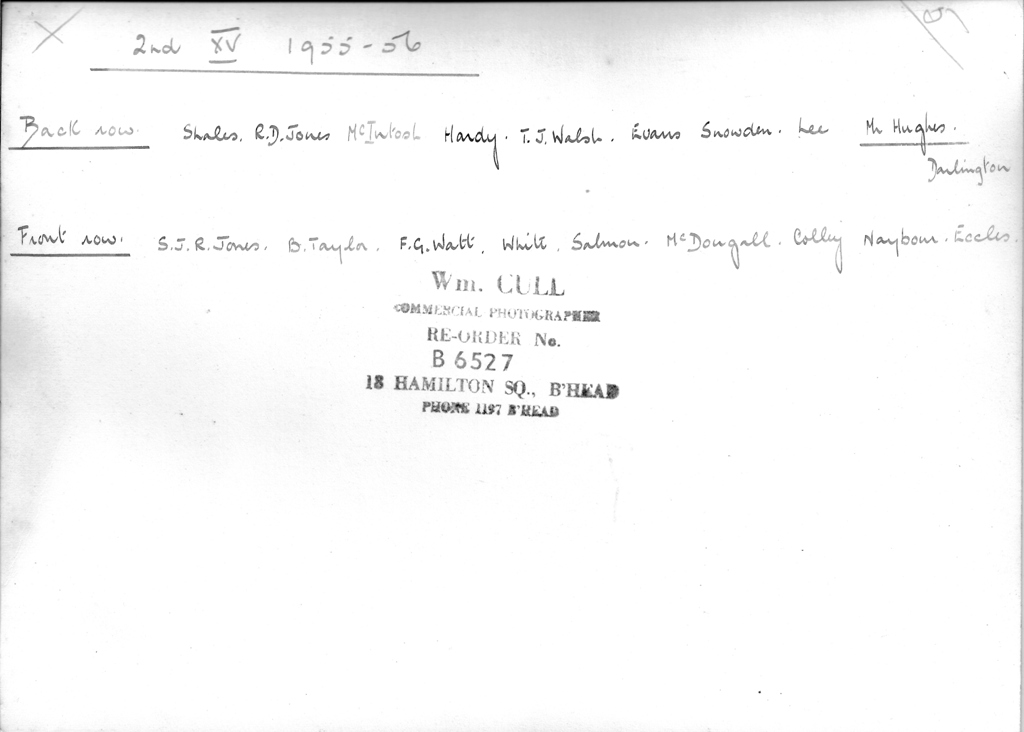 2nd XV 1955-56
Back row. Shales. R.D. Jones McIntosh Hardy. T.J. Walsh. Evans Snowden. Lee Mr Hughes.
Darlington
Front row. S.J.R. Jones. B. Taylor. F.G. Watt. White. Salmon. McDougall. Colley Naybour. Eccles.
Wm. CULL
COMMERCIAL PHOTOGRAPHER
RE-ORDER No.
B 6527
18 HAMILTON SQ., B'HEAD
PHONE 1197 B'HEAD